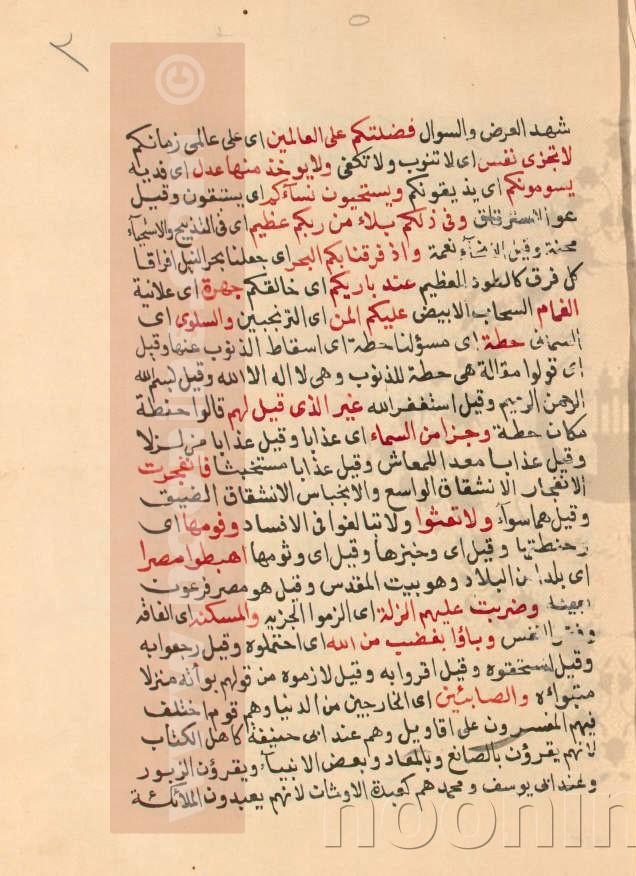 ٢
شهد العرض والسوال فضلتكم على العالمين اى على عالمى زمانكم
لا تجزى نفس اى لا تنوب ولا تكفى ولا يوخذ منها عدل اى فديه
يسومونكم اى يذيقونكم ويستحيون نسآءكم اى يستبقون وقيل
وفى ذلكم بلاء من ربكم عظيم اى فى التذبيح والاستحيآء
محنة وقيل نعمة واذ فرقنا بكم البحر اى جعلنا بحر النيل افراقا
كل فرق كالطود العظيم عند باريكم اى خالقكم جهرة اى علانية
الغمام السحاب الابيض عليكم المن اى الترنجبين والسلوى اى
السمانى حطة اى مسؤلنا حطة اى اسقاط الذنوب عنها وقيل
اى قولوا مقالة هى حطة للذنوب وهى لا اله الا الله وقيل بسم الله
الرحمن الرحيم وقيل استغفر الله غير الذى قيل لهم قالوا حنطة
مكان حطة رجزا من السماء اى عذابا وقيل عذابا منزلا
وقيل عذابا معدا للمعاش وقيل عذابا مستخبثا فانفجرت
الانفجار الانشقاق الواسع والانبجاس الانشقاق الضيق
وقيل هما سوآء ولا تعثوا ولا تبالغوا فى الافساد وفومها اى
وحنطتها وقيل اى وخبزها وقيل اى وثومها اهبطوا مصرا
اى بلدا من البلاد وهو بيت المقدس وقيل هو مصر فرعون
وضربت عليهم الزلة اى الزموا الجزيه والمسكنة اى الفاقة
وفقر النفس وباؤا بغضب من الله اى احتملوه وقيل رجعوا به
وقيل استحقوه وقيل اقروا به وقيل لازموه من قولهم بوأته منزلا
متبوأه والصابئين اى الخارجين من الدنيا وهم قوم اختلف
فيهم المفسرون على اقاويل وهم عند ابى حنيفة كاهل الكتاب
لانهم يقرؤن بالصانع وبالمعاد وبعض الانبيآء ويقرؤن الزبور
وعند ابى يوسف ومحمد هم كعبدة الاوثان لانهم يعبدون الملائكة
noonin